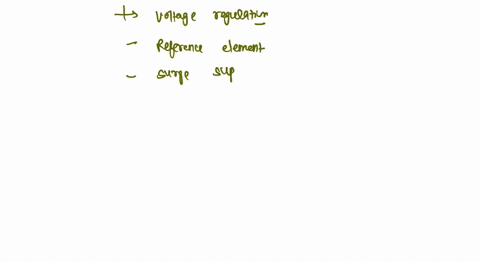 → voltage regulation
- Reference element
- surge sup